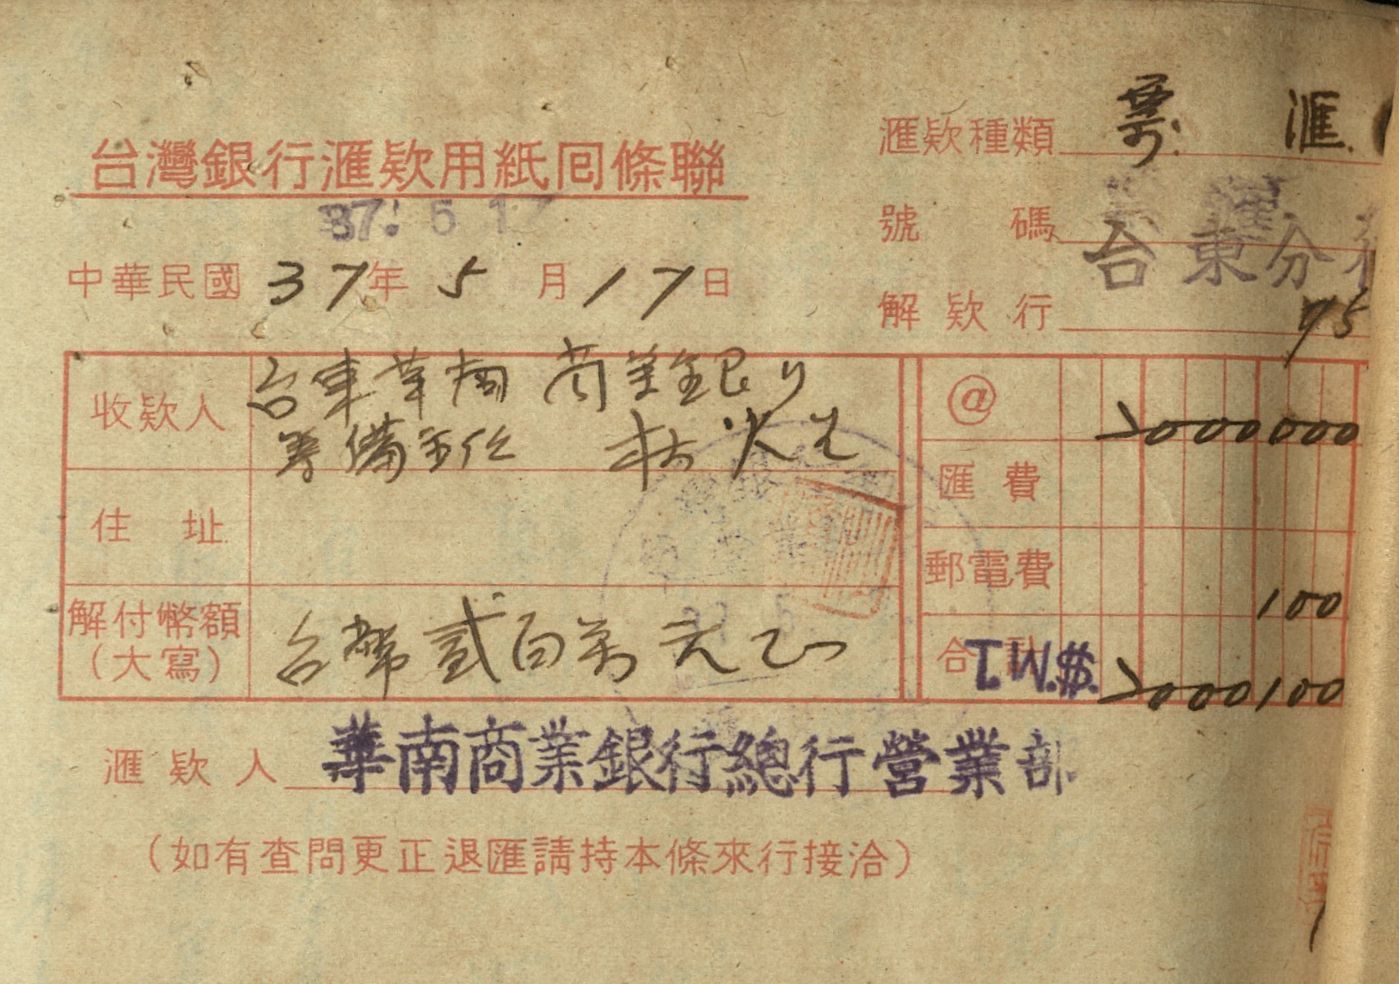 台灣銀行滙欵用紙囘條聯
37. 5 17
中華民國 37年 5月17日
滙欵種類 票滙
號碼
台東分行
解欵行 75
收欵人 台東華南商業銀行
籌備主任 林火生
住址
解付幣額（大寫） 台幣貳百萬元正
@ 2000000
匯費
郵電費 100
合計 T.W.$. 2000100
滙欵人 華南商業銀行總行營業部
（如有查問更正退匯請持本條來行接洽）